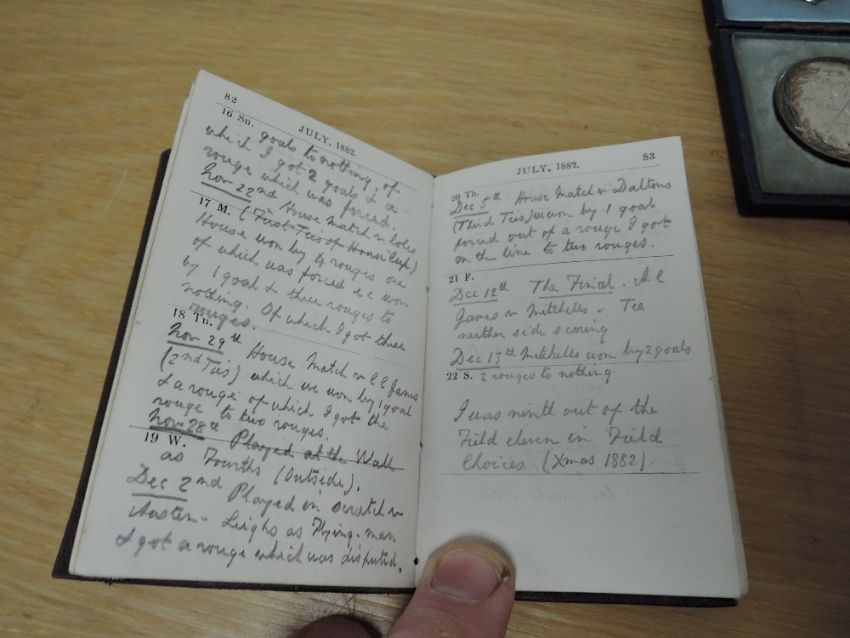 82
JULY, 1882.
16 Su. goals to nothing, of
which I got 2 goals & a
rouge which was forced.
Nov 22nd House Match v Coles
17 M. (First Ties of House Cup)
House won by 4 rouges one
of which was forced i.e won
by 1 goal & three rouges to
nothing. Of which I got three
rouges.
18 Tu.
Nov 29th House Match v C C James
(2nd Ties) which we won by 1 goal
& a rouge of which I got the
rouge to two rouges.
Nov 28th Played at the Wall
19 W.
as Fourths (Outside).
Dec 2nd Played in Scratch v
Austen-Leighs as Flying-man
I got a rouge which was disputed.
JULY, 1882.
83
20 Th.
Dec 5th House Match v Daltons
(Third Ties) won by 1 goal
forced out of a rouge I got
on the line to two rouges.
21 F.
Dec 12th The Final. A C
James v Mitchells - Tee
neither side scoring
Dec 13th Mitchells won by 2 goals
22 S. 2 rouges to nothing
I was ninth out of the
Field eleven in Field
Choices (Xmas 1882)